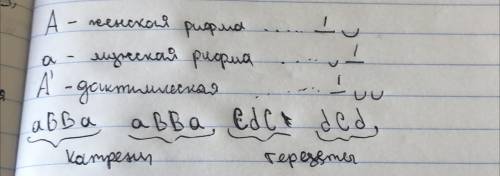 А - женская рифма ..... _́ ◡
а - мужская рифма ..... ◡ _́
А' - дактилическая ..... _́ ◡ ◡
аББа аББа CdC dCd
катрены терцеты